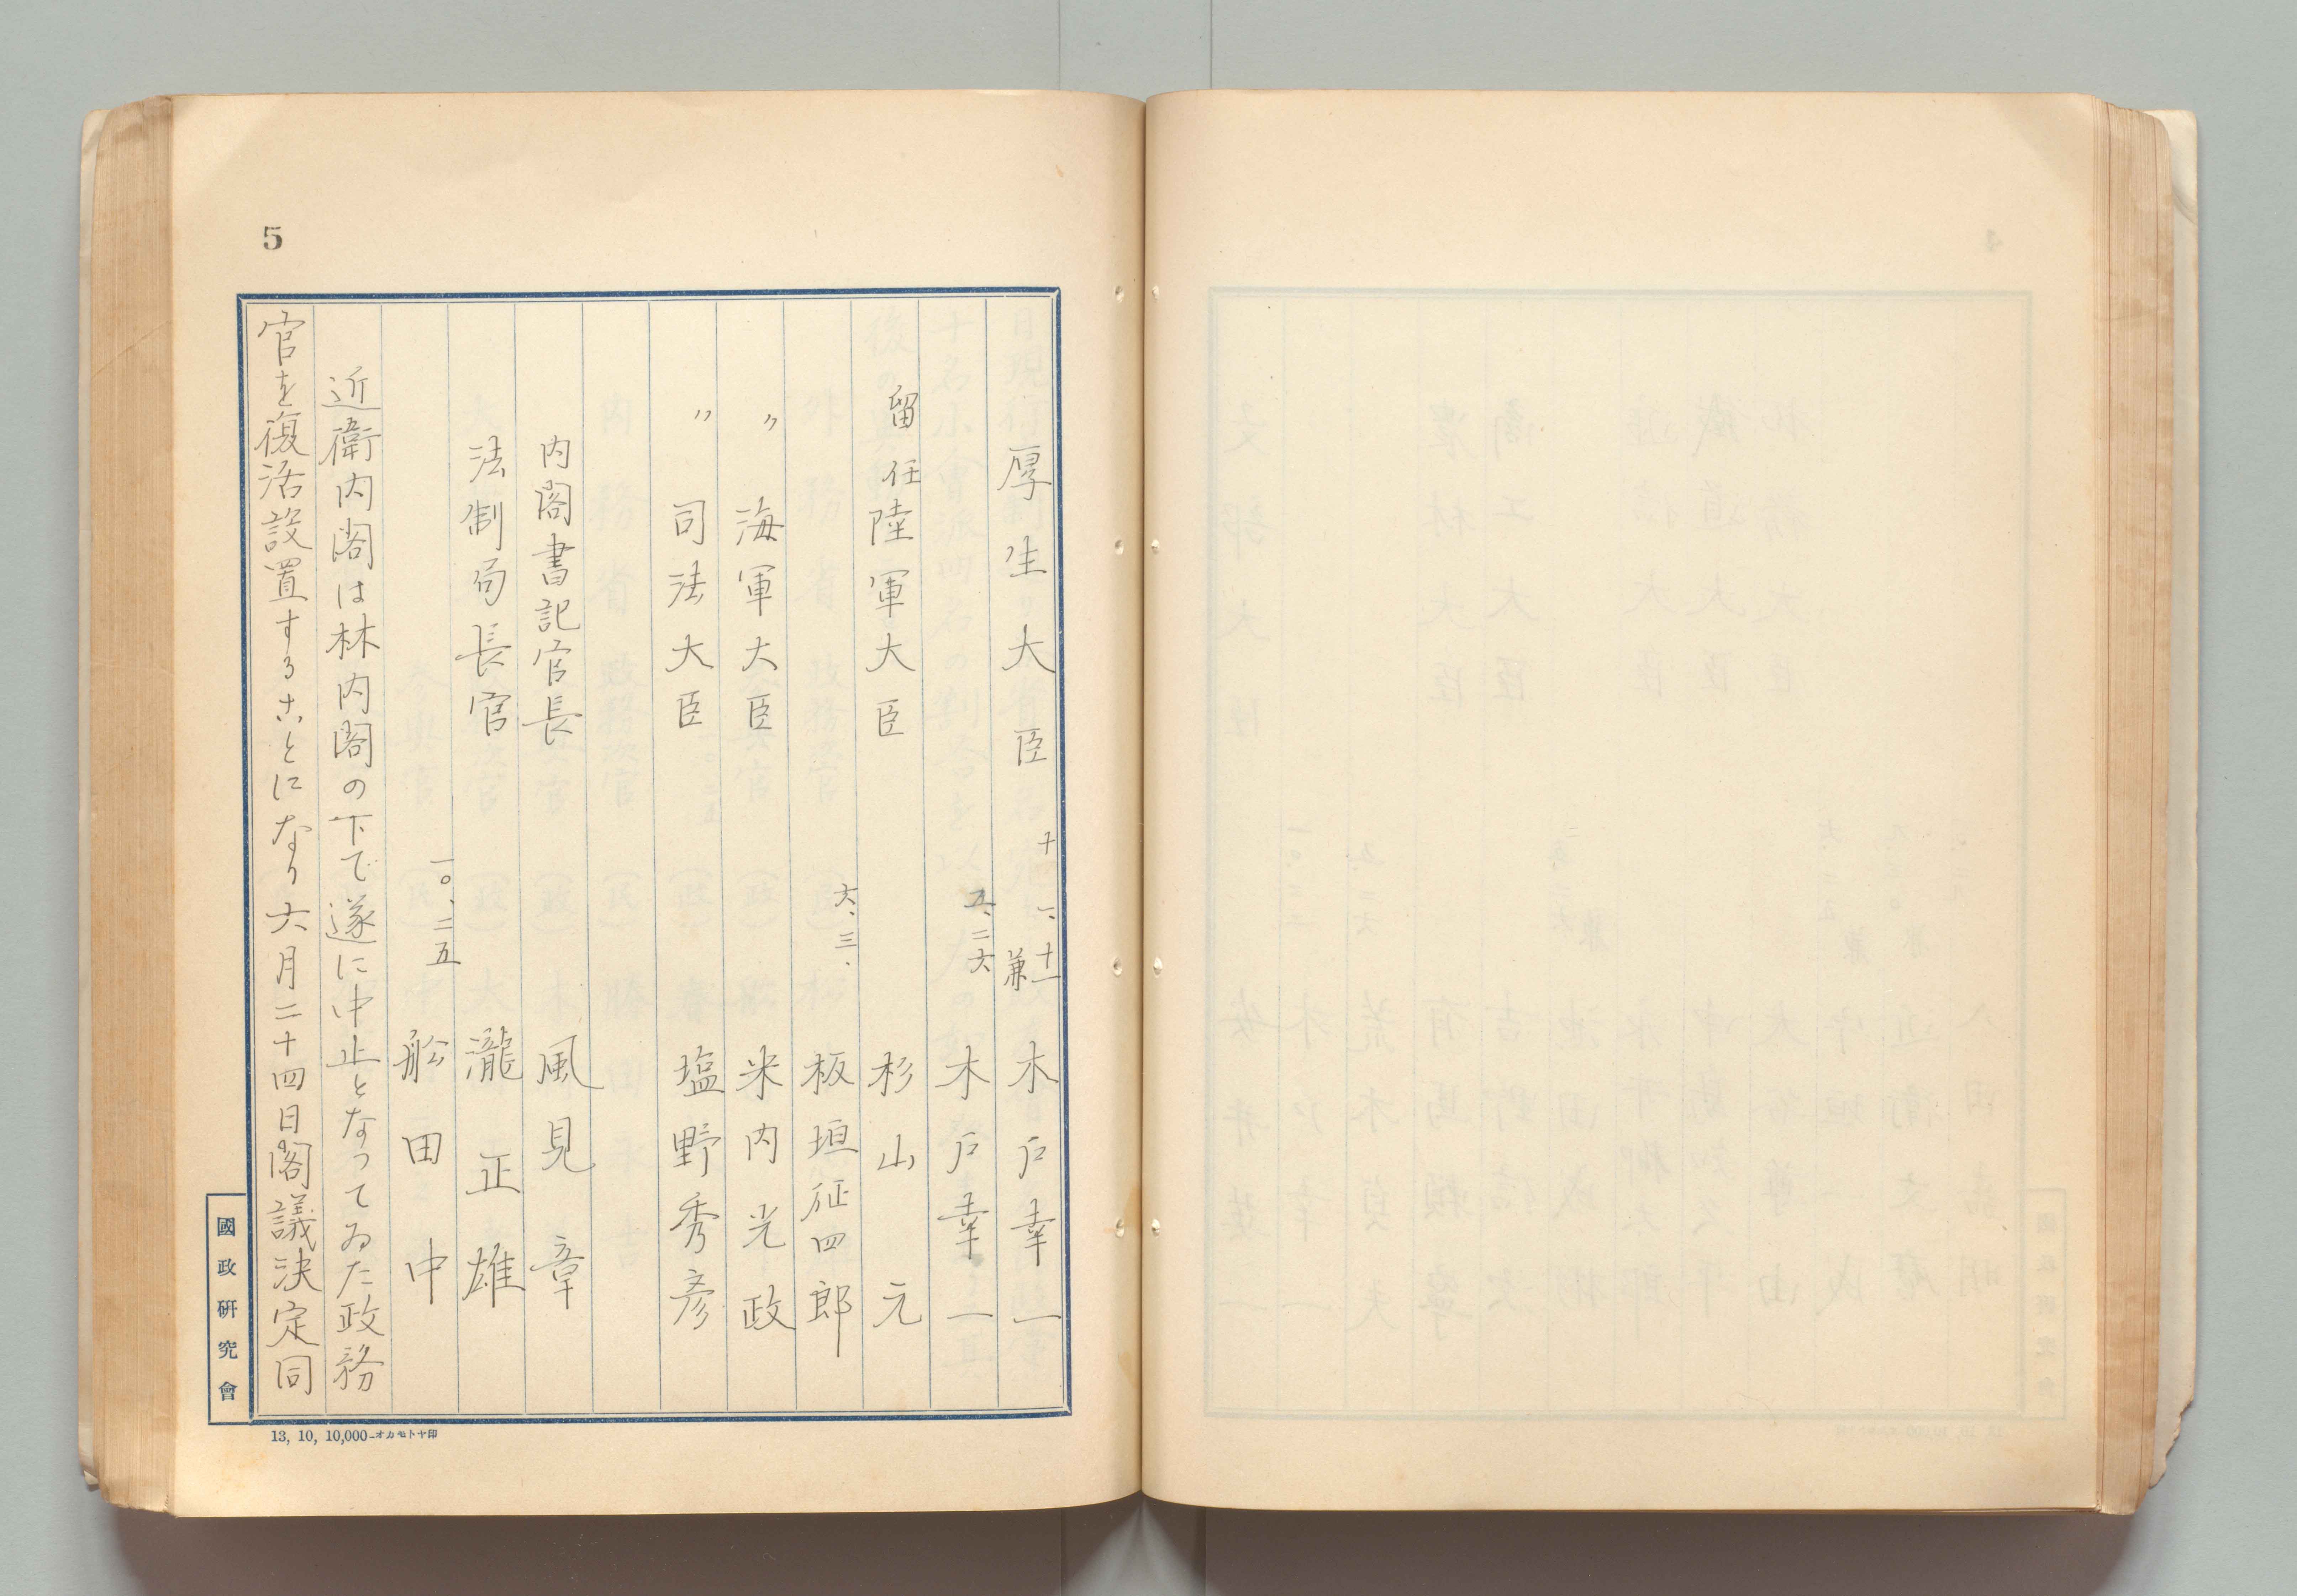 5
厚生大臣 十一、十一 兼 木戸幸一
五、二六 木戸幸一
留任 陸軍大臣 杉山元
六、三、 板垣征四郎
〃 海軍大臣 米内光政
〃 司法大臣 塩野秀彦
内閣書記官長 風見章
法制局長官 瀧正雄
一〇、二五 舩田中
近衛内閣は林内閣の下で遂に中止となつてゐた政務
官を復活設置することになり六月二十四日閣議決定同
國政研究會
13, 10, 10,000-オカモトヤ印